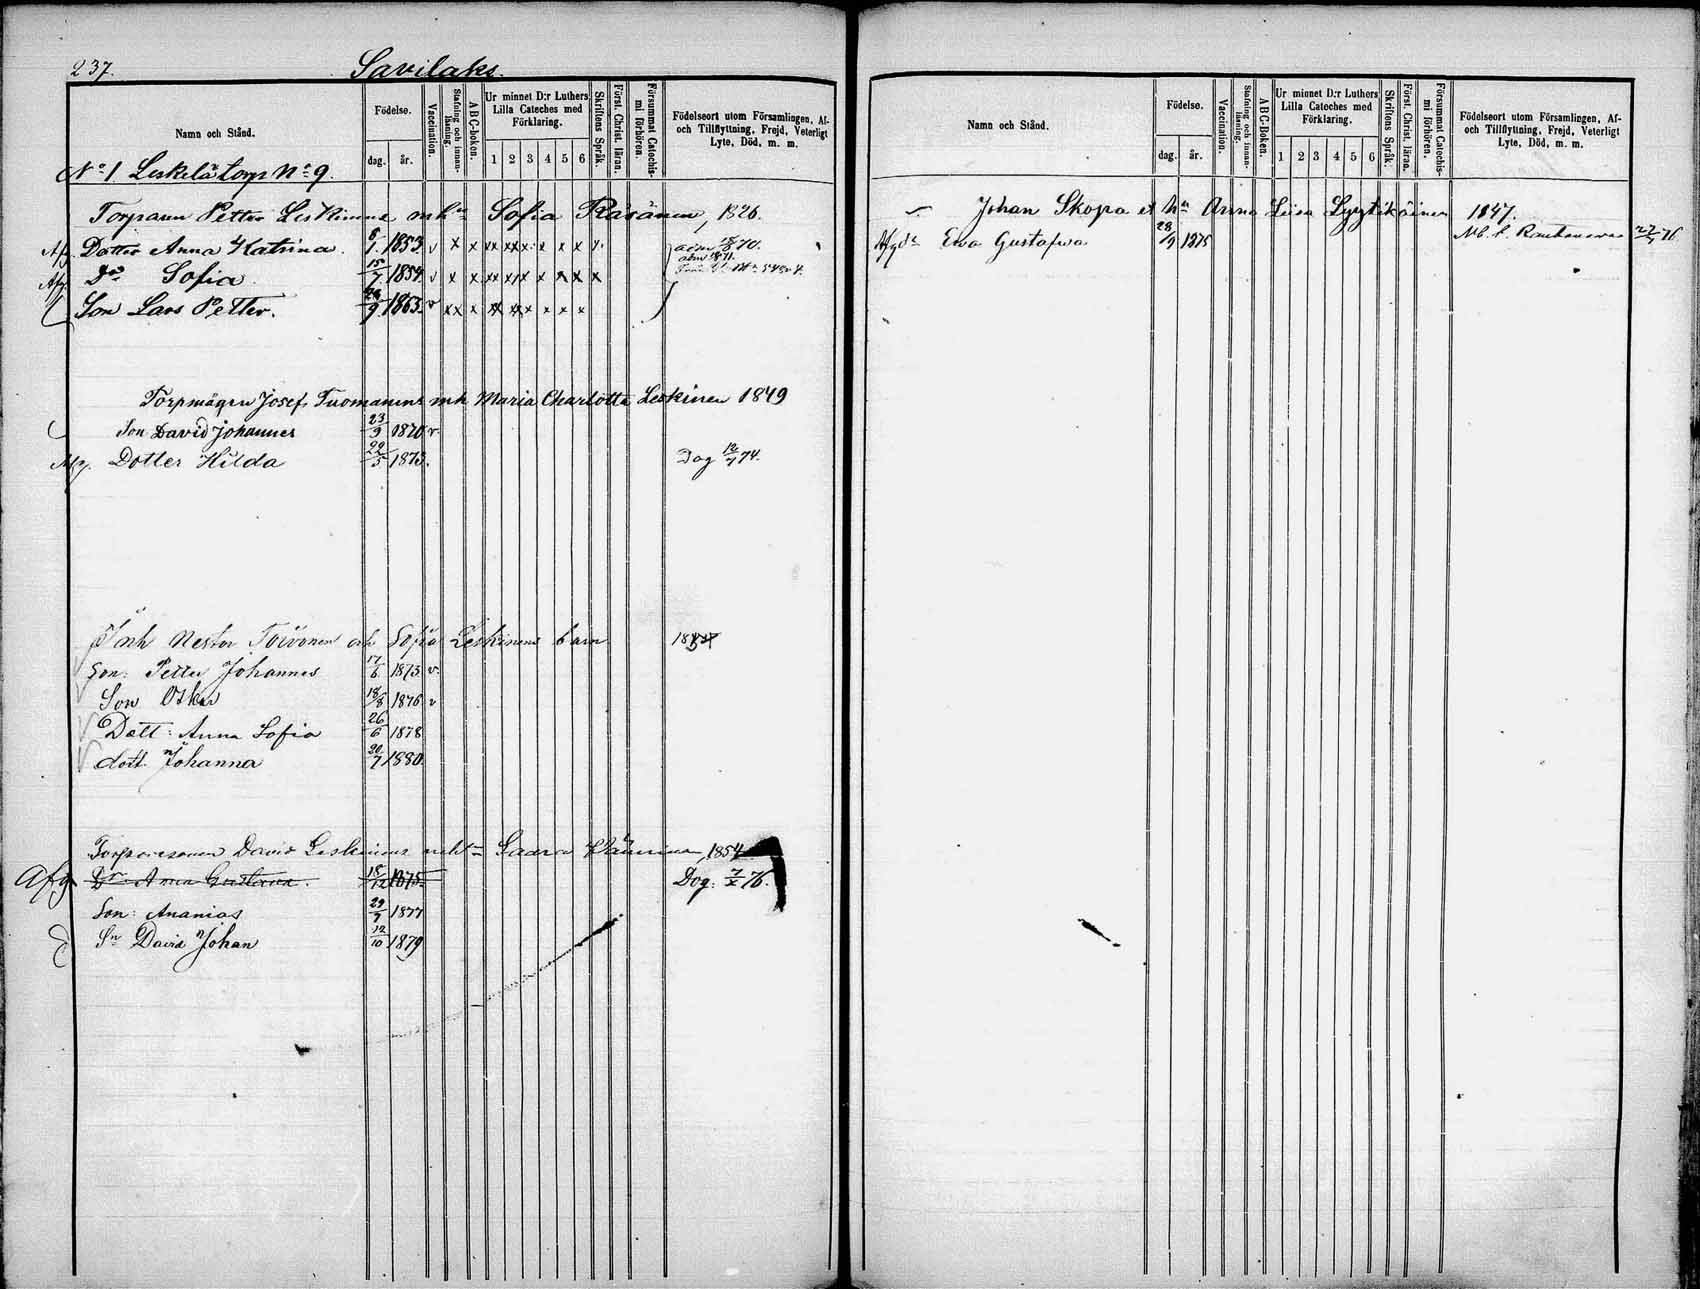 237.
Savilaks.
Namn och Stånd.
Födelse.
dag.
år.
Vaccination.
Stafning och innanläsning.
ABC-boken.
Ur minnet D:r Luthers Lilla Cateches med Förklaring.
1 2 3 4 5 6
Skriftens Språk.
Först. Christ. läran.
Försummat Catechismi förhören.
Födelseort utom Församlingen, Af- och Tillflyttning, Frejd, Veterligt Lyte, Död, m. m.
No 1 Leskelä torp No 9.
Torparen Petter Leskinens mhn Sofia Räsänen, 1826.
Afg Dotter Anna Katrina 1853 v x x xx xx x x x x adm 70.
Afg. Do Sofia 15/7 1854 v x x xx xx x x x x x adm 1871.
Son Lars Petter. 1863 v xx x xx xx x x x x
Torpmågen Josef Tuomanens mh Maria Charlotta Leskinen 1849
Son David Johannes 23/9 1870 v.
Afg. Dotter Hilda 22/5 1873. Dog 12/7 74.
Inh Nestor Toivonen och Sofia Leskinens barn
Son: Petter Johannes 17/6 1873 v.
Son Oskar 18/8 1876 v
Dott: Anna Sofia 26/6 1878
dott. Johanna 20/7 1880.
Torparesonen David Leskinens mhn Saara 1854
Afg Dr Anna Gustava. 18/12 1875 Dog: 7/x 76.
Son: Ananias 1877
Sn David Johan 12/10 1879
Namn och Stånd.
Födelse.
dag.
år.
Vaccination.
Stafning och innanläsning.
ABC-Boken.
Ur minnet D:r Luthers Lilla Cateches med Förklaring.
1 2 3 4 5 6
Skriftens Språk.
Först. Christ. läran.
Försummat Catechismi förhören.
Födelseort utom Församlingen, Af- och Tillflyttning, Frejd, Veterligt Lyte, Död, m. m.
Johan Skopa et hn Anna Liisa Lyytikäinen 1847.
Afg dr Ewa Gustafwa 28/9 1875 76